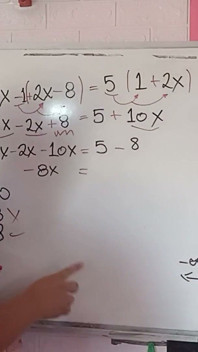 x -1(+2x-8) = 5 (1+2x)
x -2x +8 = 5 + 10x
x -2x -10x = 5 - 8
-8x =